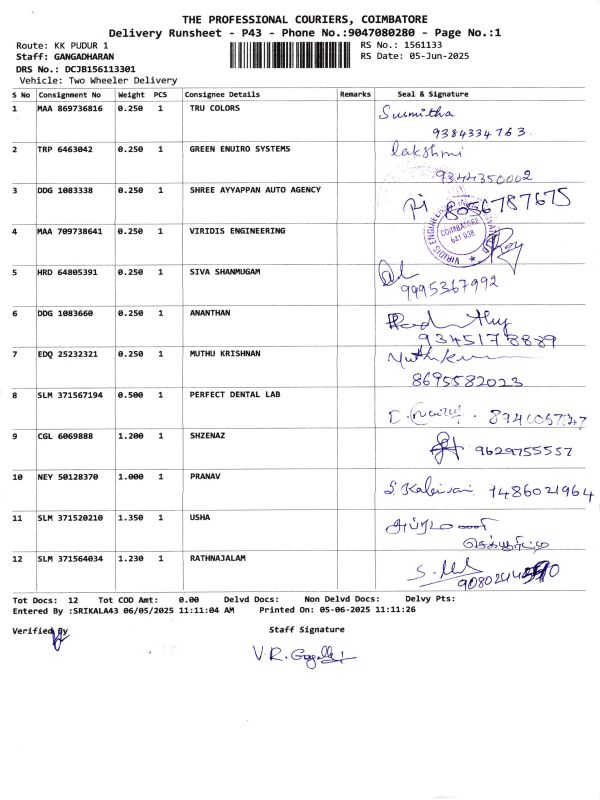 THE PROFESSIONAL COURIERS, COIMBATORE
Delivery Runsheet - P43 - Phone No.:9047080280 - Page No.:1
Route: KK PUDUR 1 RS No.: 1561133
Staff: GANGADHARAN RS Date: 05-Jun-2025
DRS No.: DCJB156113301
Vehicle: Two Wheeler Delivery
S No Consignment No Weight PCS Consignee Details Remarks Seal & Signature
1 MAA 869736816 0.250 1 TRU COLORS Susmitha
9384334763
2 TRP 6463042 0.250 1 GREEN ENUIRO SYSTEMS lakshmi
9344350002
3 DDG 1083338 0.250 1 SHREE AYYAPPAN AUTO AGENCY
8056787675
4 MAA 709738641 0.250 1 VIRIDIS ENGINEERING
COIMBATORE
641 038
5 HRD 64805391 0.250 1 SIVA SHANMUGAM
9995367992
6 DDG 1083660 0.250 1 ANANTHAN
9345178889
7 EDQ 25232321 0.250 1 MUTHU KRISHNAN
8695582023
8 SLM 371567194 0.500 1 PERFECT DENTAL LAB
9 CGL 6069888 1.200 1 SHZENAZ 9629755557
10 NEY 50128370 1.000 1 PRANAV
11 SLM 371520210 1.350 1 USHA
12 SLM 371564034 1.230 1 RATHNAJALAM
Tot Docs: 12 Tot COD Amt: 0.00 Delvd Docs: Non Delvd Docs: Delvy Pts:
Entered By :SRIKALA43 06/05/2025 11:11:04 AM Printed On: 05-06-2025 11:11:26
Verified By Staff Signature